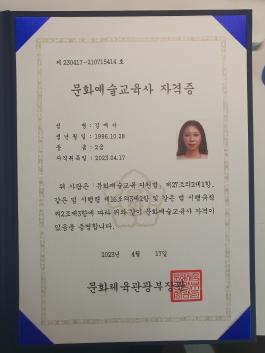 제 230417-210715414 호
문화예술교육사 자격증
성 명 : 김예서
생년월일 : 1996.10.28
등 급 : 2급
자격취득일 : 2023.04.17
위 사람은 「문화예술교육 지원법」 제27조의2제1항,
같은 법 시행령 제18조의3제2항 및 같은 법 시행규칙
제2조제3항에 따라 위와 같이 문화예술교육사 자격이
있음을 증명합니다.
2023년 4월 17일
문화체육관광부장관